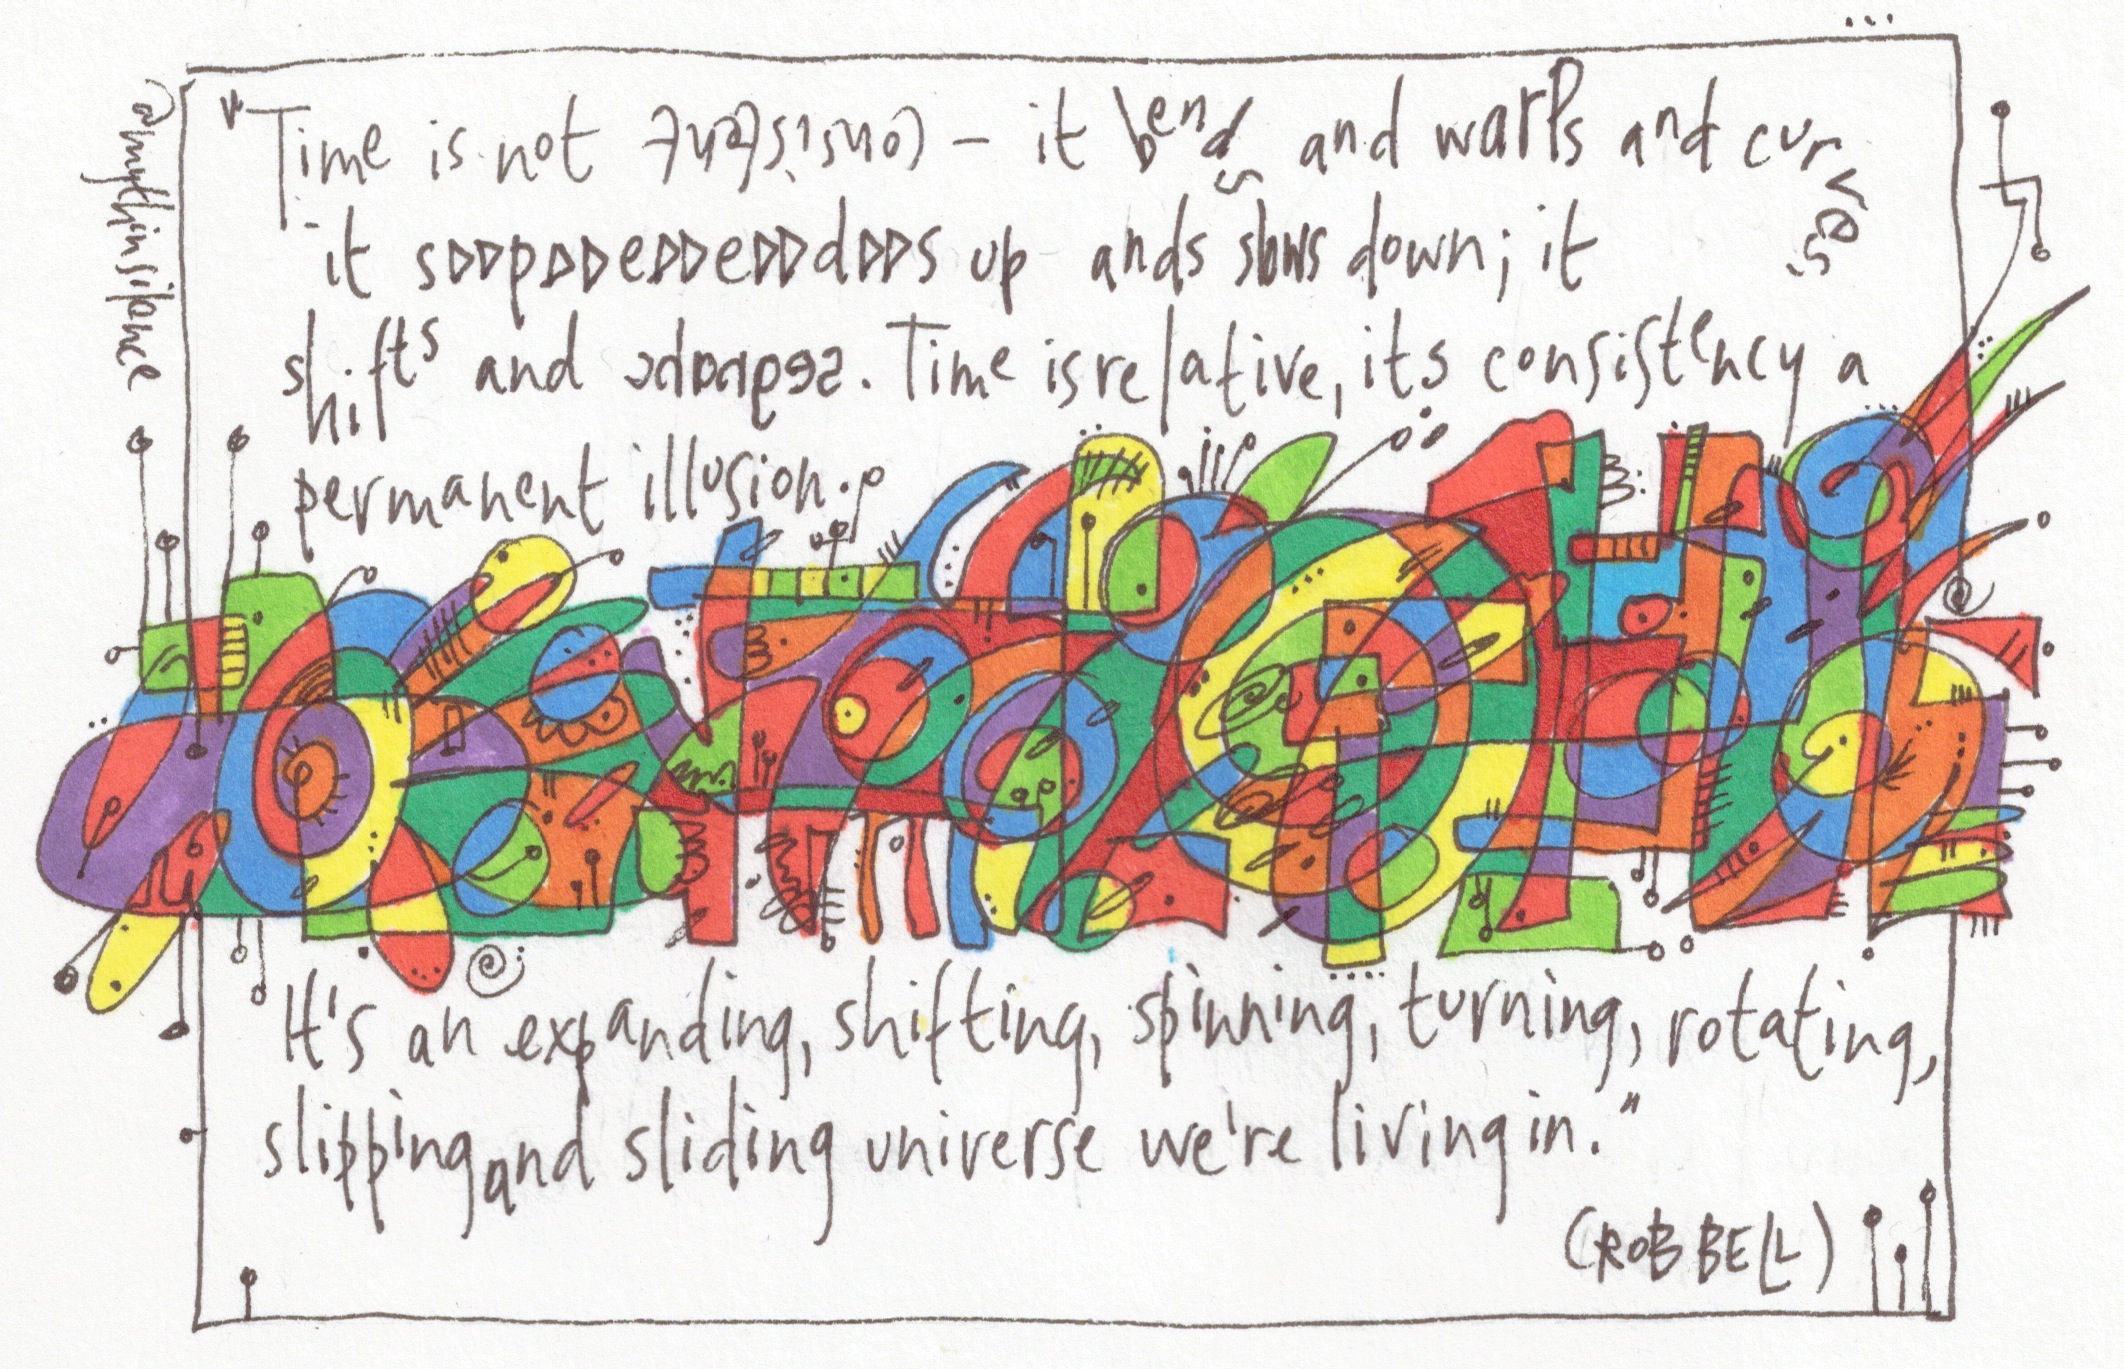 "Time is not consistent - it bends and warps and curves
it speeds up ands slows down; it
shifts and changes. Time is relative, its consistency a
permanent illusion.
It's an expanding, shifting, spinning, turning, rotating,
slipping and sliding universe we're living in."
(ROB BELL)